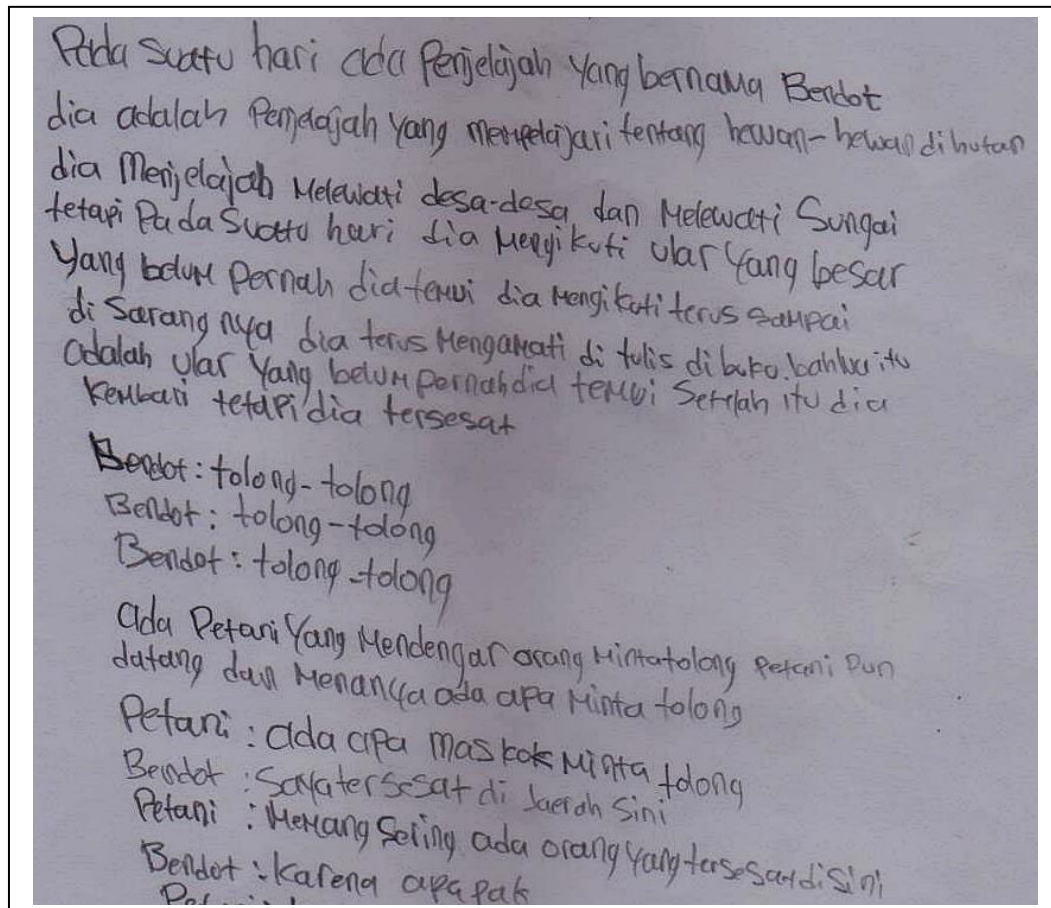 Pada Suatu hari ada Penjelajah Yang bernama Bendot
dia adalah Penjelajah Yang mempelajari tentang hewan-hewan di hutan
dia Menjelajah Melewati desa-desa dan Melewati Sungai
tetapi Pada Suatu hari dia Mengikuti ular Yang besar
Yang belum Pernah dia temui dia Mengikuti terus sampai
di Sarang nya dia terus Mengamati di tulis di buku bahwa itu
adalah ular Yang belum pernah dia temui Setelah itu dia
Kembali tetapi dia tersesat
Bendot: tolong-tolong
Bendot: tolong-tolong
Bendot: tolong-tolong
ada Petani Yang Mendengar orang Minta tolong Petani Pun
datang dan Menanya ada apa Minta tolong
Petani: ada apa mas kok Minta tolong
Bendot: Saya tersesat di daerah Sini
Petani: Memang Sering ada orang Yang tersesat di Sini
Bendot: Karena apa pak